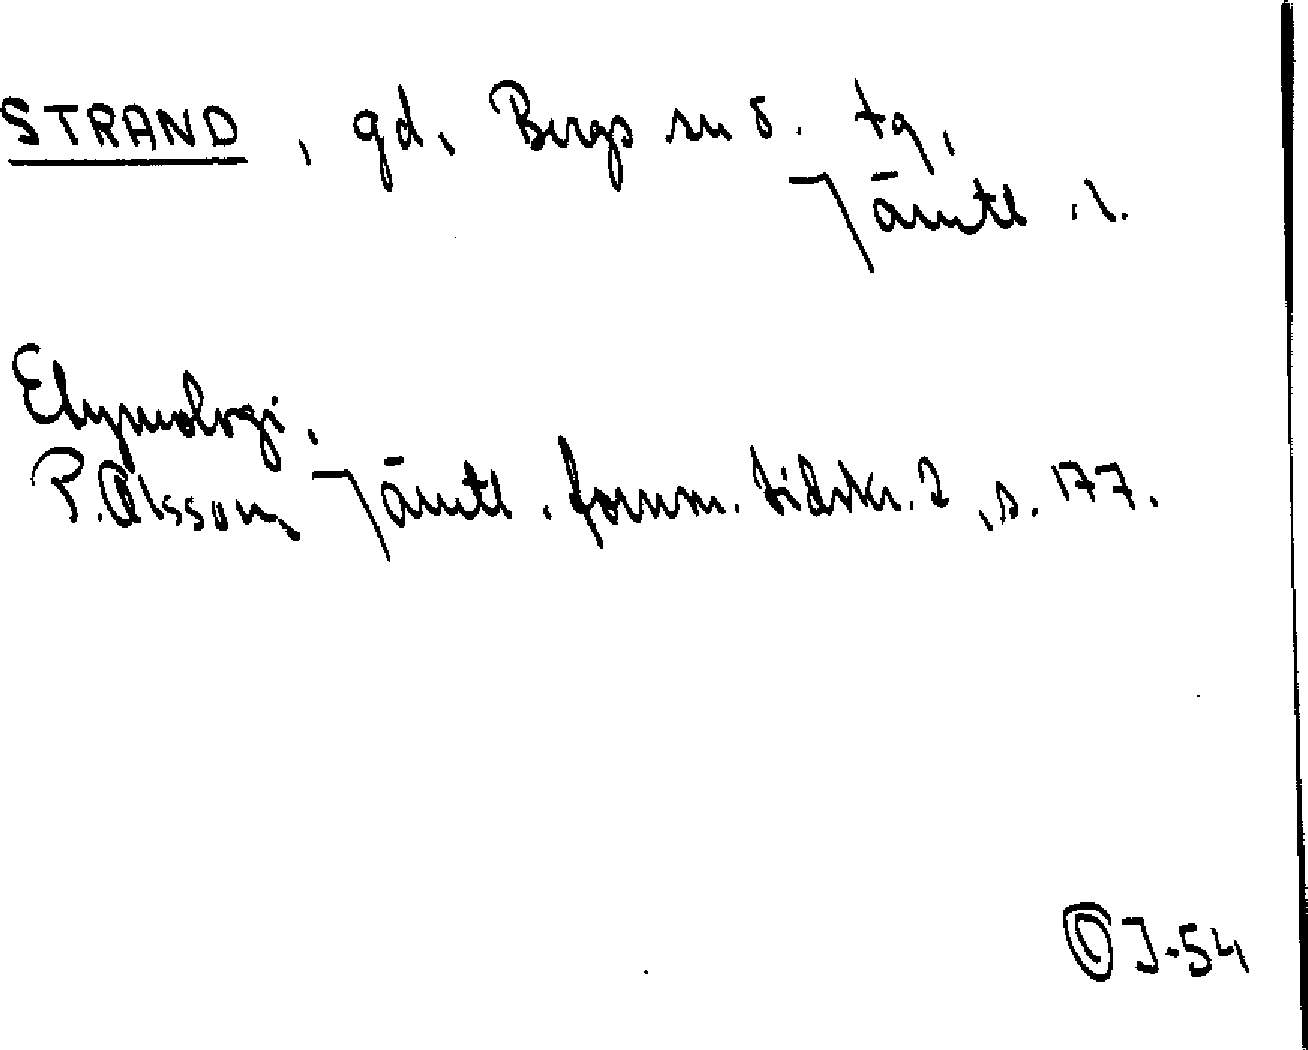 STRAND, gd, Bergs sn o. tg,
Jämtl. l.
Etymologi.
P. Olsson, Jämtl. fornm. tidskr. 2, s. 177.
OJ-54